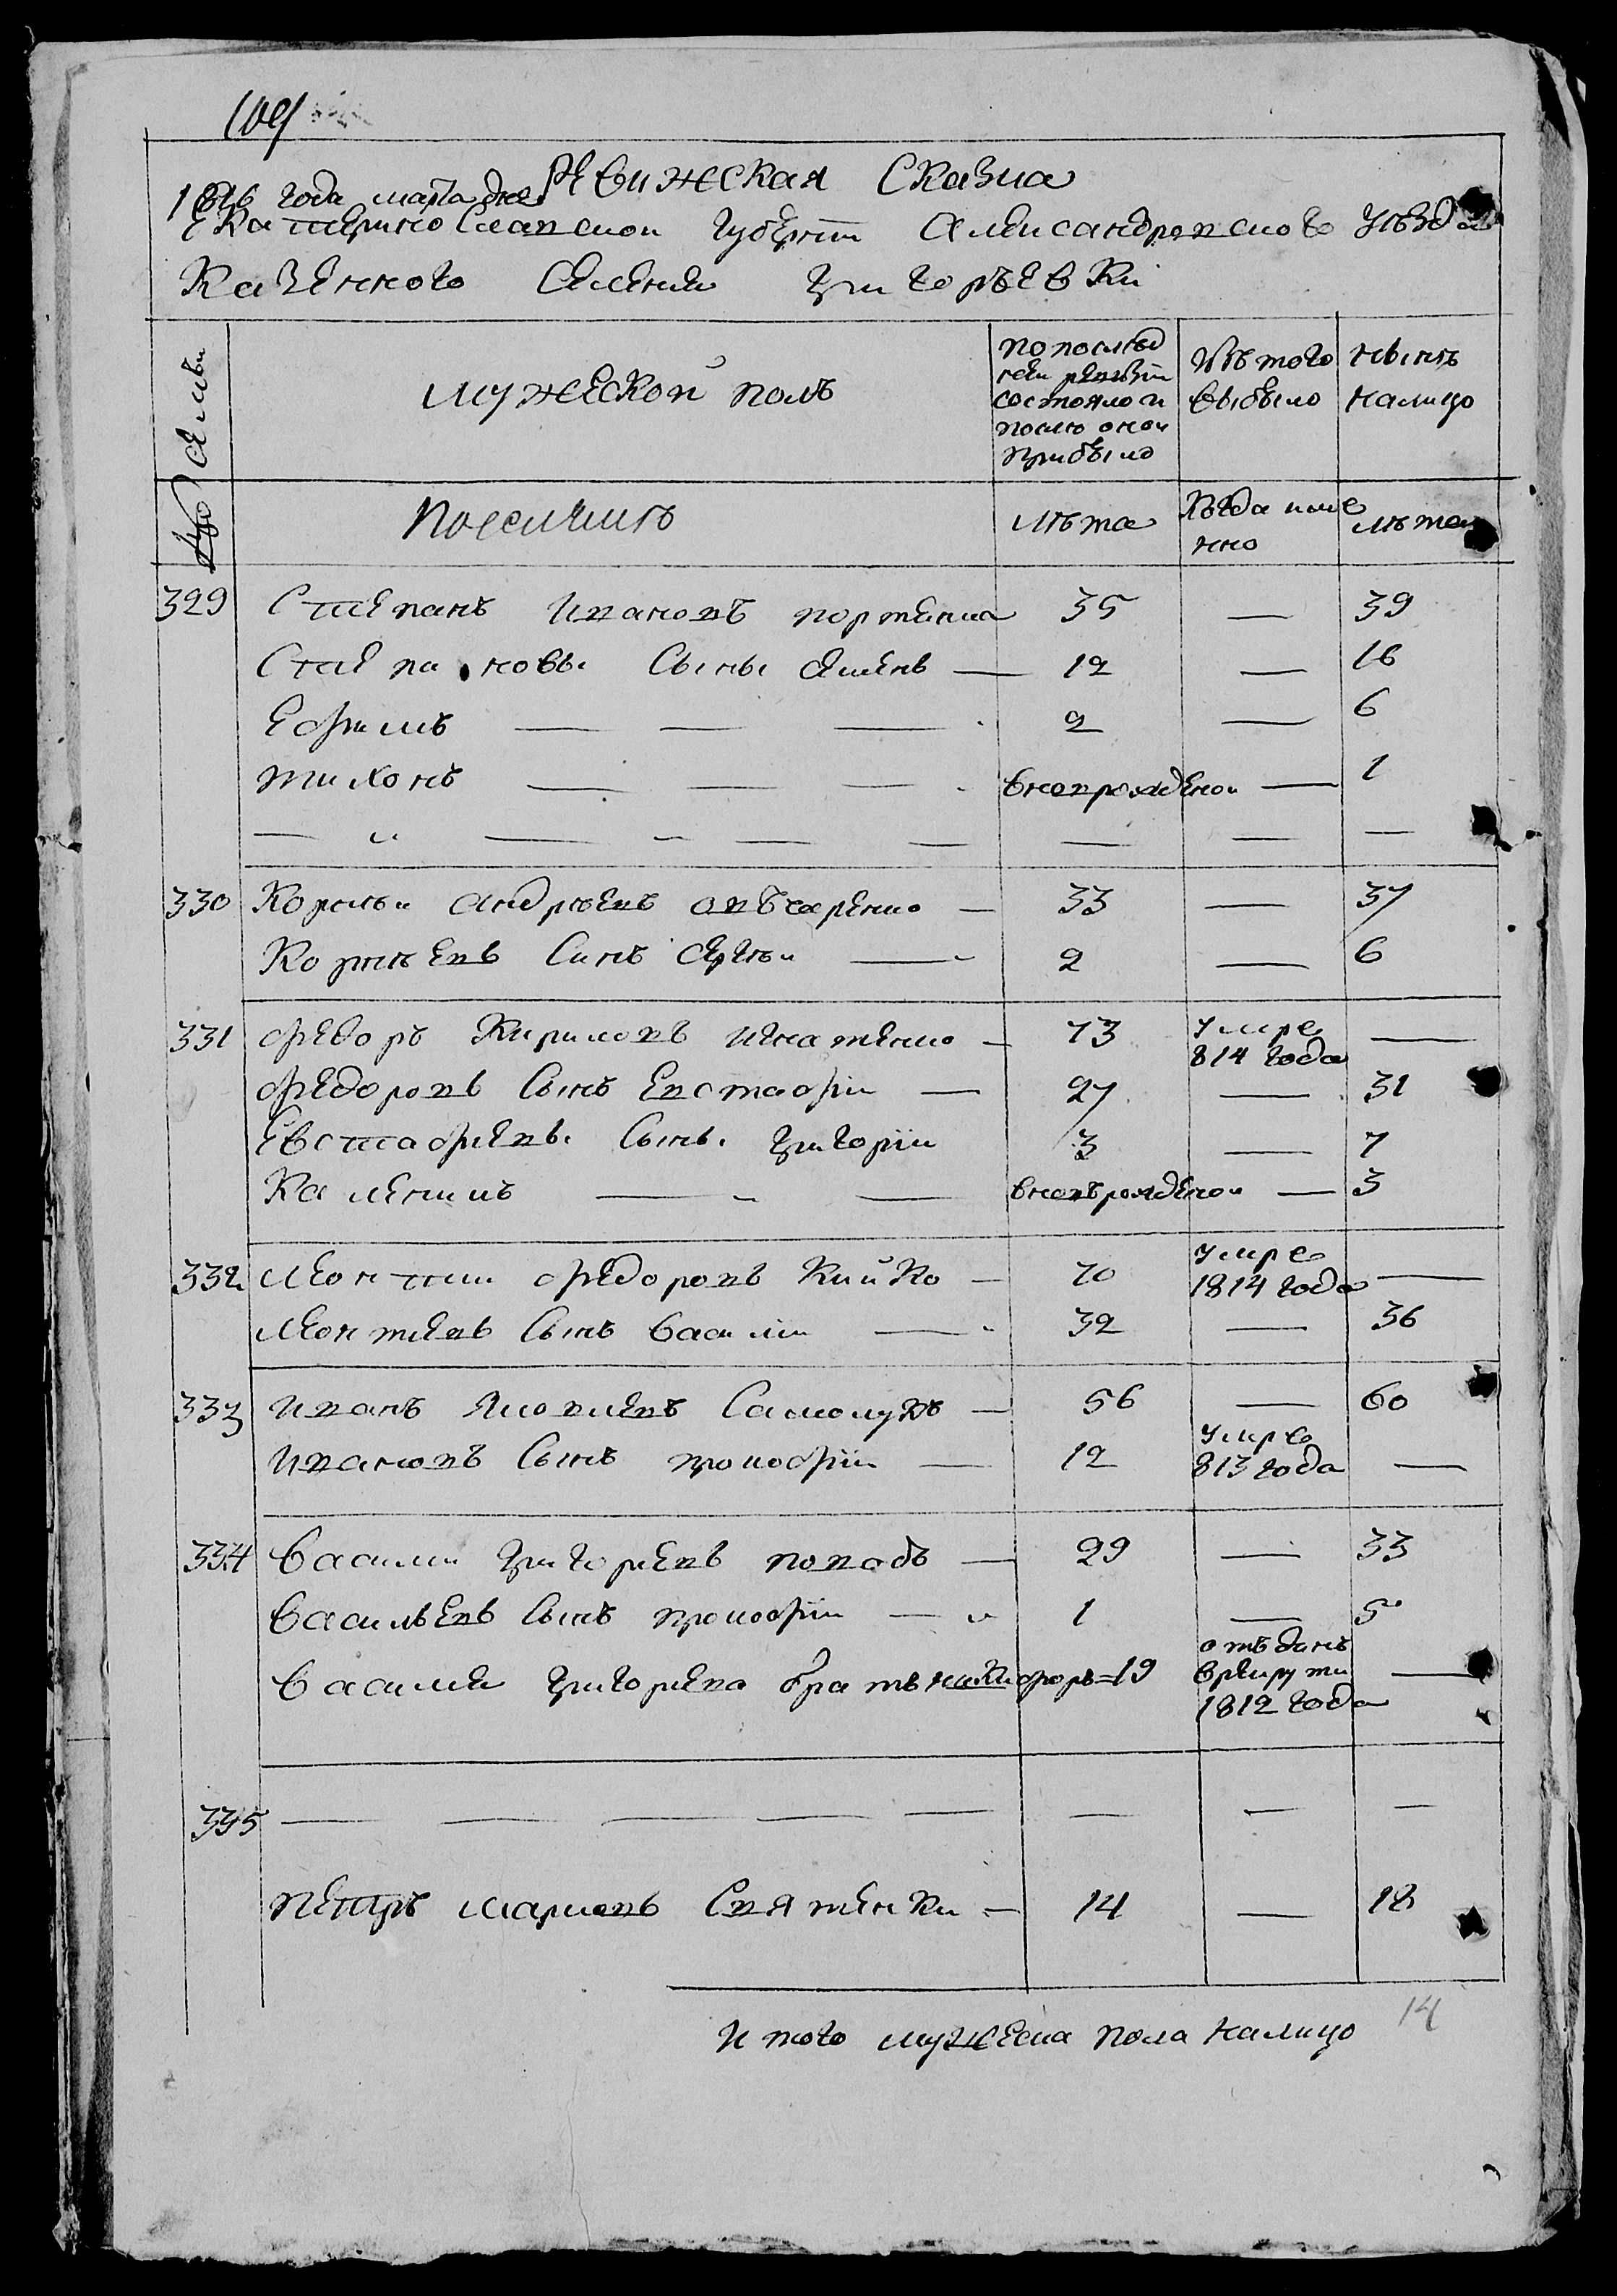 109
Ревижская Сказка
1816 года марта дня
Екатеринославской губернии Александровского уезда
Казенного Селения Григорьевки
Семьи
мужеской полъ
по послед
ней ревизіи
состояло и
после оной
прибыло
Изъ того
выбыло
ныне
налицо
Поселянъ
лѣта
Когда имен
но
лѣта
329 Степанъ Ивановъ портенка 35 — 39
Степановы Сыны Семенъ — 12 — 16
Ефимъ — — — 2 — 6
Тихонъ — — — вновьрожденой — 1
330 Корнѣй Андрѣевъ овъчаренко — 33 — 37
Корнѣевъ Синъ Сергѣи — 2 — 6
331 Федоръ Кириловъ Игнатенко — 73 умре
814 года —
Федоровъ Сынъ Евстафіи — 27 — 31
Евстафиевы Сыны Григоріи 3 — 7
Каленикъ — — вновърожденой — 3
332 Леонтии Федоровъ Кийко — 70 умре
1814 года —
Леонтиевъ Сынъ Василіи — 32 — 36
333 Иванъ Яковлевъ Самолукъ — 56 — 60
Ивановъ Сынъ прокофіи — 12 умре
813 года —
334 Василии Григориевъ попадъ — 29 — 33
Васильевъ Сынъ прокофіи — 1 — 5
Василия Григориева братъ никифоръ 19 отъданъ
врекруты
1812 года —
335 — — — — — — — —
петръ марковъ Святенки — 14 — 18
Итого мужеска пола налицо 14